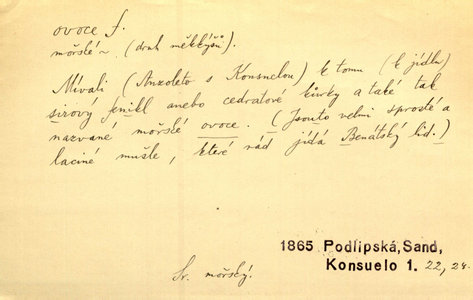 ovoce f.
mořské ~ (druh měkkýšů).
Mívali (Anzoleto s Konsuelou) k tomu (k jídlu)
syrový fenikl anebo cedratové kůrky a také tak
nazvané mořské ovoce. (Jsouto velmi sprosté a
laciné mušle, které rád jídá Benátský lid.)
1865 Podlipská, Sand,
Konsuelo 1. 22, 24.
Sv. mořský.